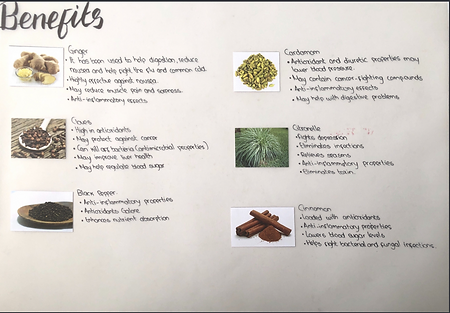 Benefits
Ginger
• It has been used to help digestion, reduce
nausea and help fight the flu and common cold.
• Highly effective against nausea.
• May reduce muscle pain and soreness.
• Anti-inflammatory effects
Cloves
• High in antioxidants
• May protect against cancer
• Can kill off bacteria (antimicrobial properties)
• May improve liver health
• May help regulate blood sugar
Black Pepper
• Anti-inflammatory properties
• Antioxidants Galore
• Enhances nutrient absorption
Cardamom
• Antioxidant and diuretic properties may
lower blood pressure.
• May contain cancer-fighting compounds
• Anti-inflammatory effects
• May help with digestive problems
Citronella
• Fights depression
• Eliminates infections
• Relieves spasms
• Anti-inflammatory properties
• Eliminates toxin
Cinnamon
• Loaded with antioxidants
• Anti-inflammatory properties
• Lowers blood sugar levels
• Helps fight bacterial and fungal infections.